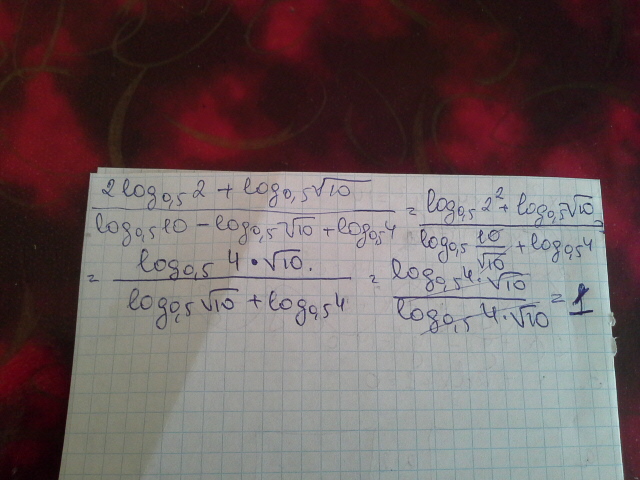 (2log₀,₅2 + log₀,₅√10) / (log₀,₅10 - log₀,₅√10 + log₀,₅4) = (log₀,₅2² + log₀,₅√10) / (log₀,₅ 10/√10 + log₀,₅4) =
= (log₀,₅ 4·√10.) / (log₀,₅√10 + log₀,₅4) = (log₀,₅4·√10) / (log₀,₅4·√10) = 1